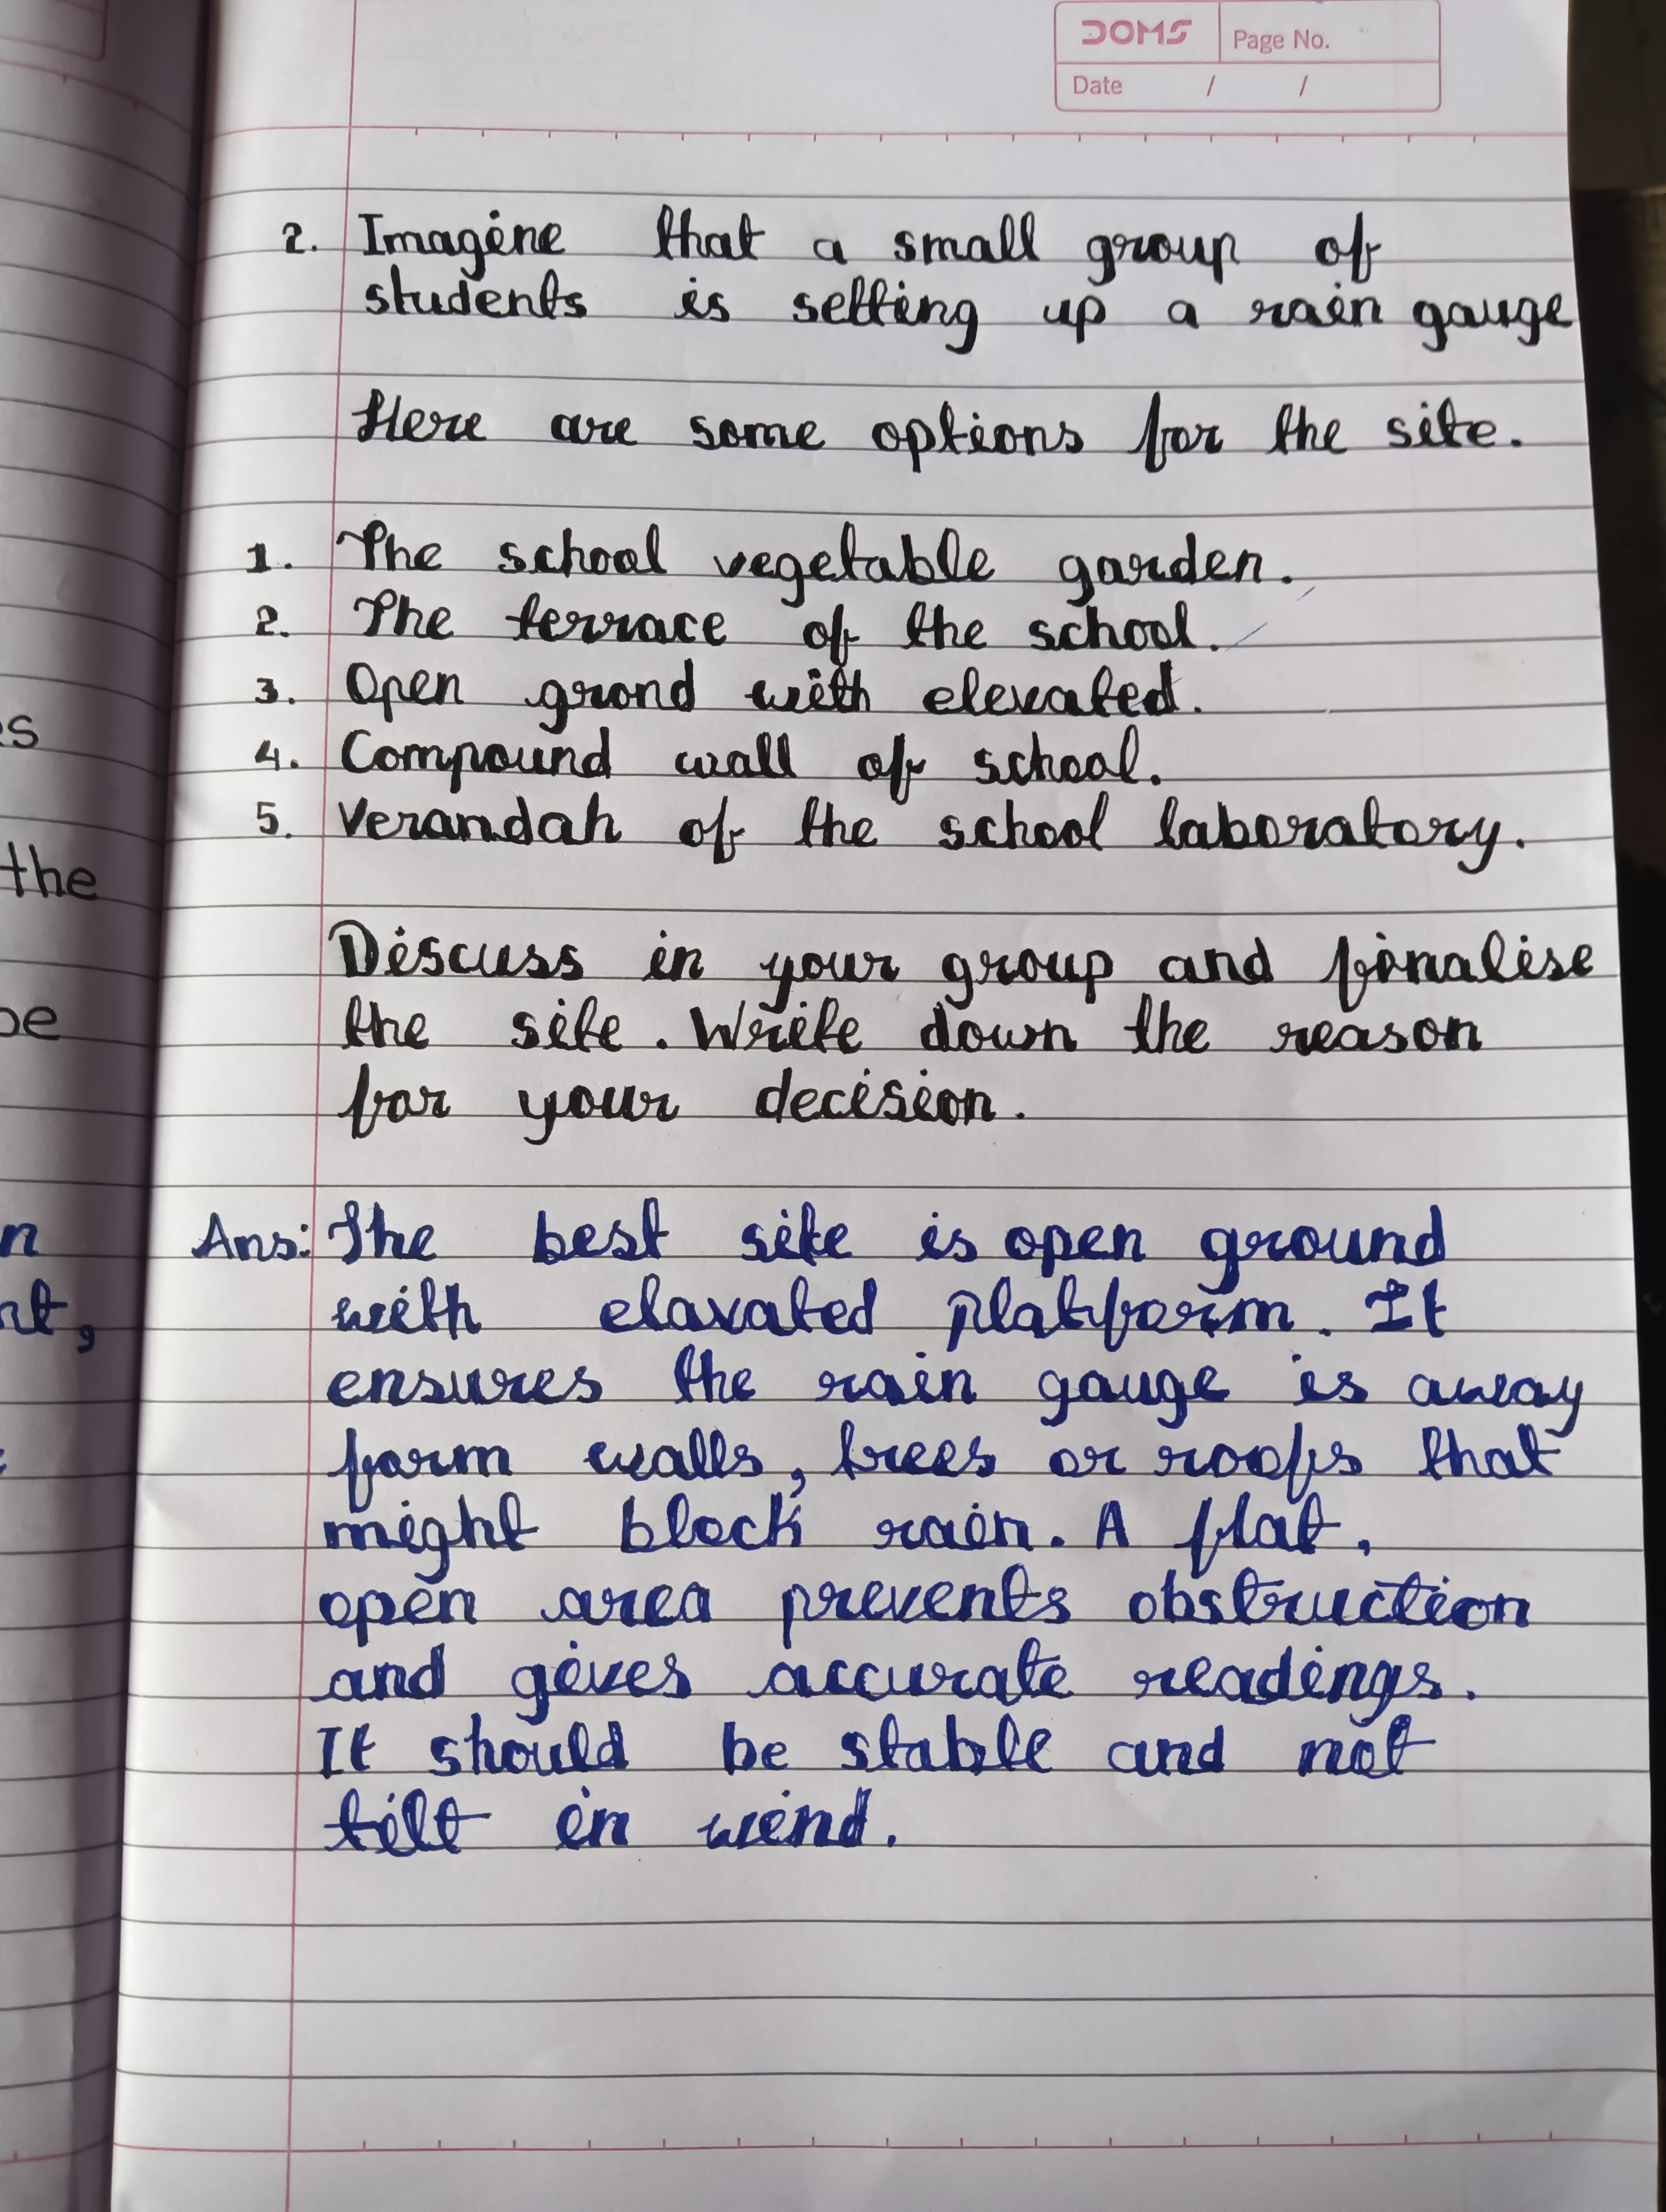 DOMS Page No.
Date / /
2. Imagine that a small group of
students is setting up a rain gauge
Here are some options for the site.
1. The school vegetable garden.
2. The terrace of the school.
3. Open grond with elevated.
4. Compound wall of school.
5. Verandah of the school laboratory.
Discuss in your group and finalise
the site. Write down the reason
for your decision.
Ans: The best site is open ground
with elavated platform. It
ensures the rain gauge is away
form walls, trees or roofs that
might block rain. A flat,
open area prevents obstruction
and gives accurate readings.
It should be stable and not
tilt in wind.
the